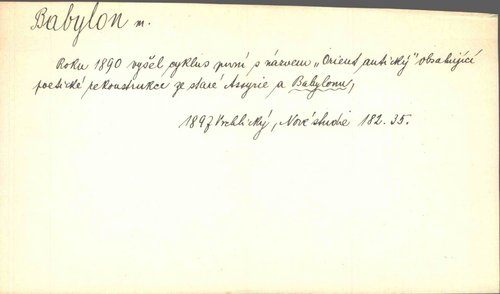 Babylon m.
Roku 1890 vyšel cyklus první s názvem „Orient antický" obsahující
poetické rekonstrukce ze staré Assyrie a Babylonu,
1897 Vrchlický, Nové studie 182. 35.